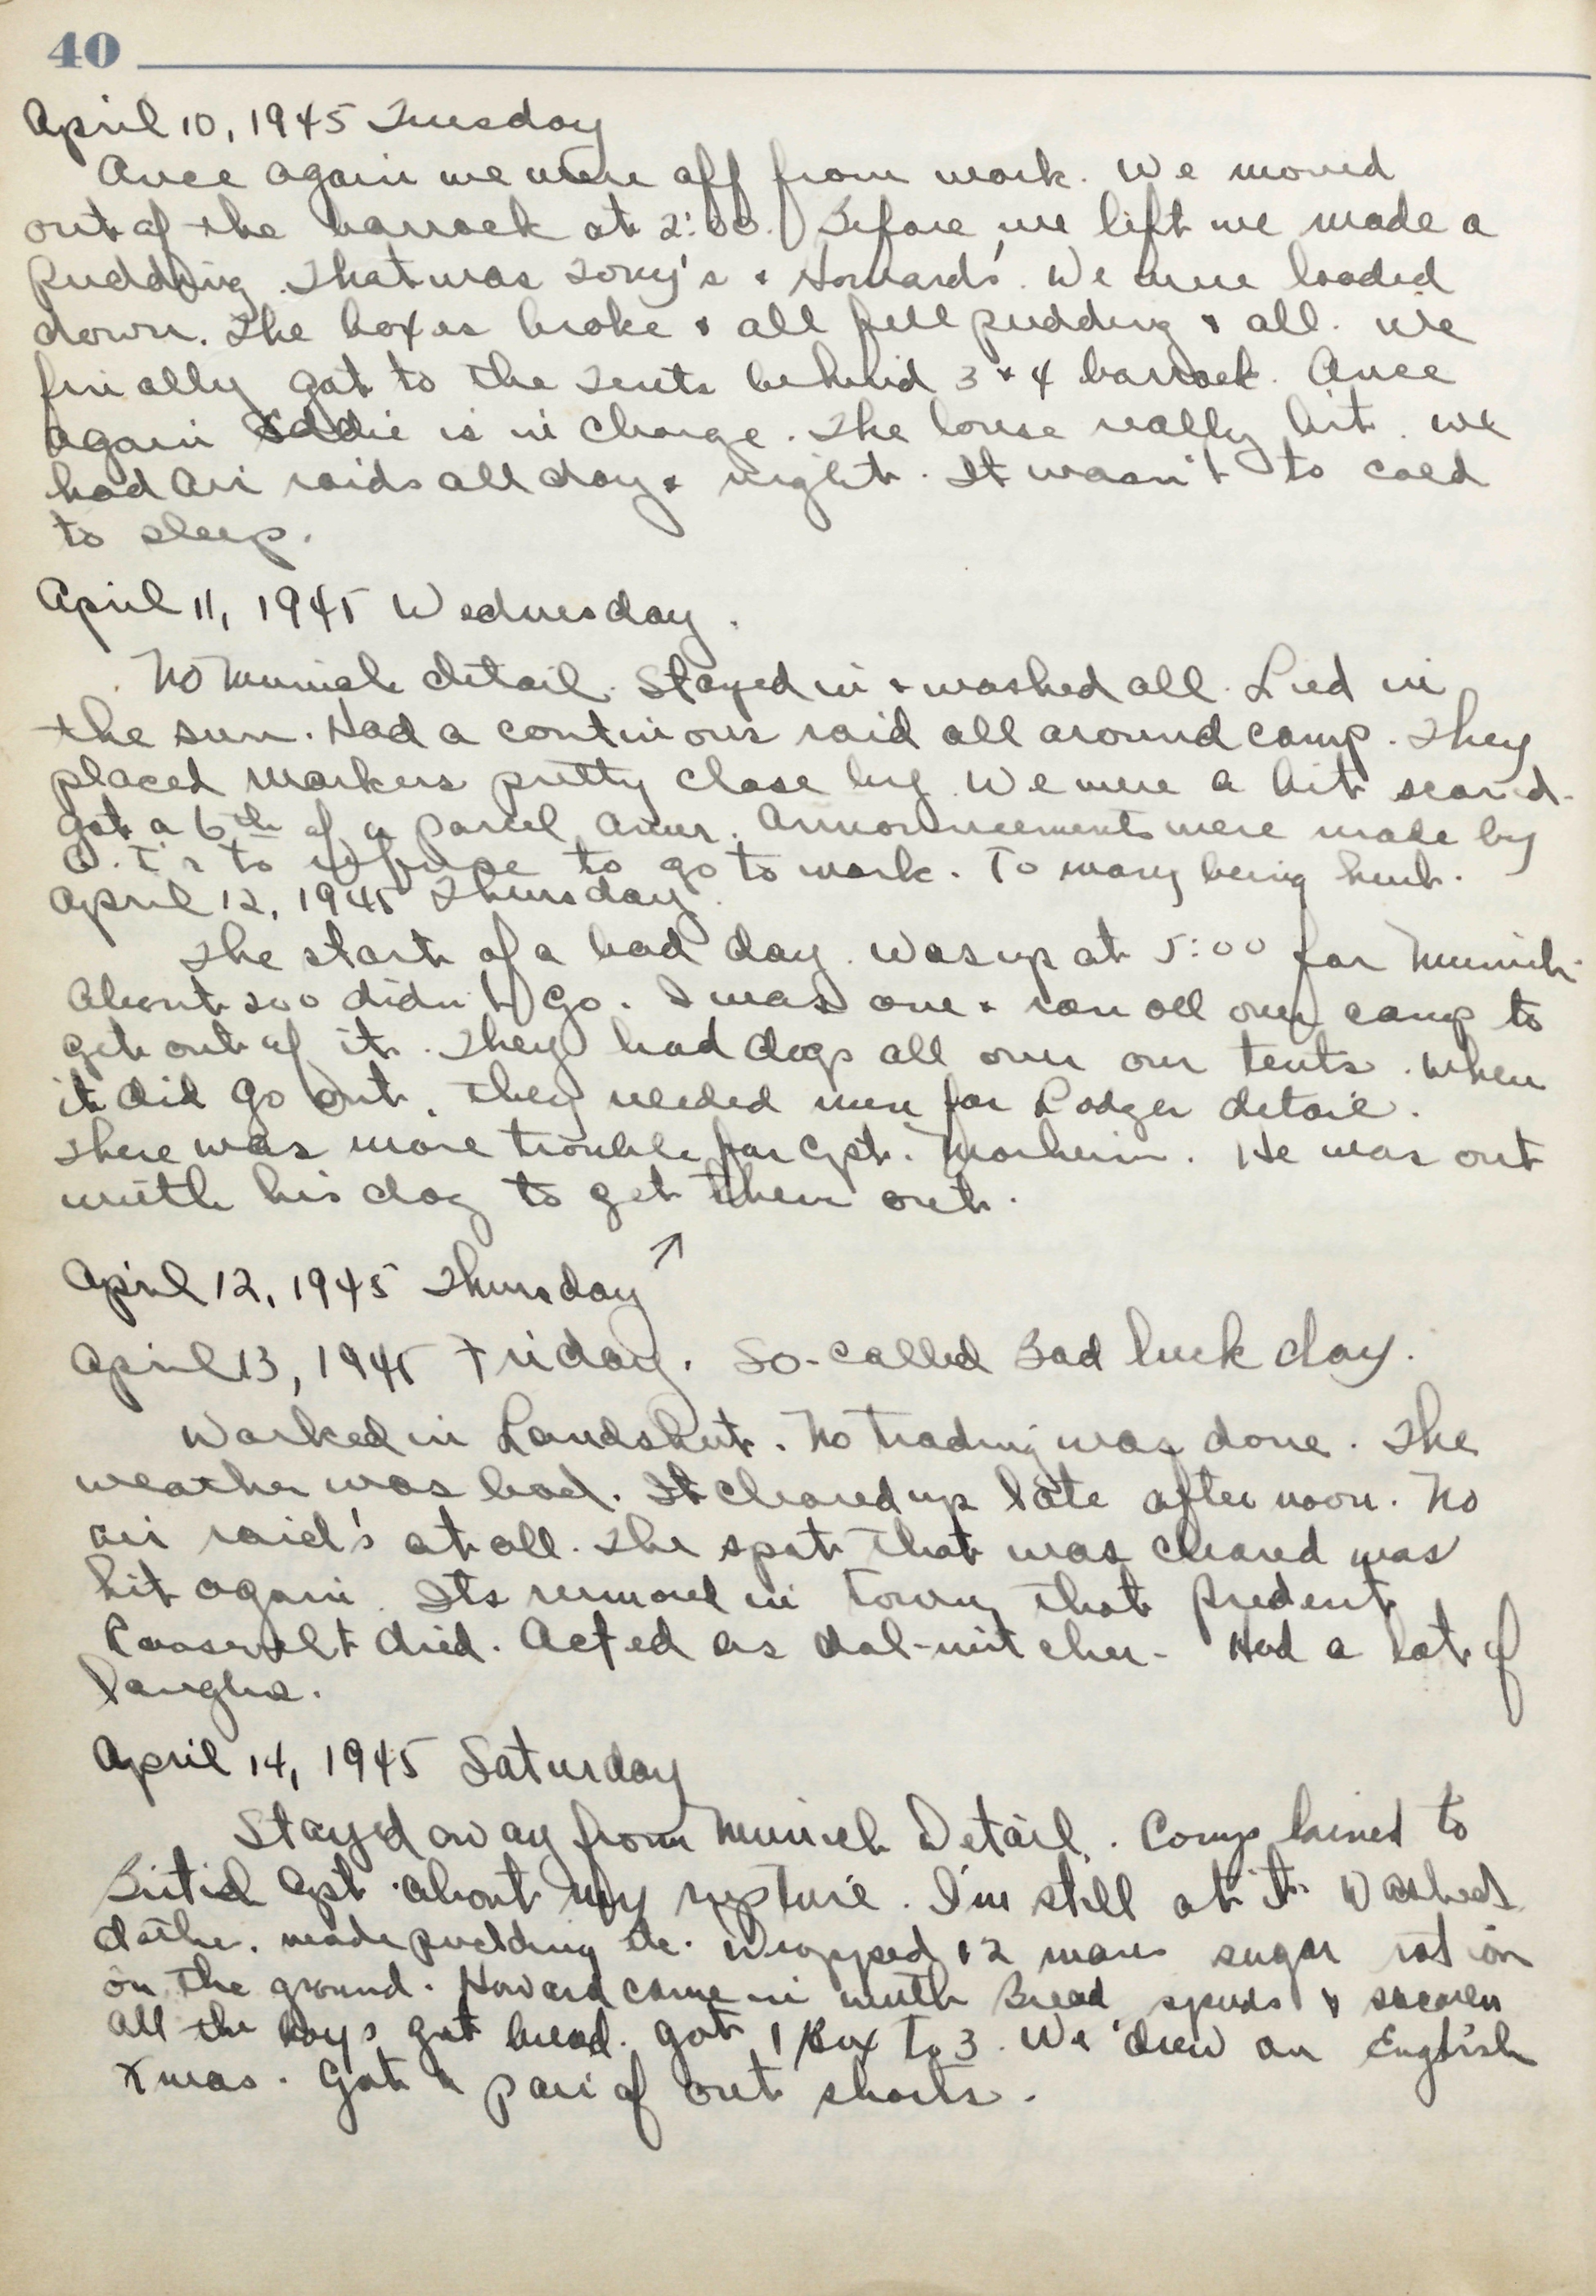 40
April 10, 1945 Tuesday
Once again we were off from work. We moved
out of the barrack at 2:00. Before we left we made a
pudding. That was Tony's & Howards'. We were loaded
down. The boxes broke & all fell pudding & all. We
finally got to the tents behind 3 & 4 barrack. Once
again Eddie is in charge. The louse really bit. We
had air raids all day & night. It wasn't to cold
to sleep.
April 11, 1945 Wednesday.
No Munich detail. Stayed in & washed all. Lied in
the sun. Had a continious raid all around camp. They
placed markers pretty close by. We were a bit scared.
got a 6th of a parcel Amer. Announcements were made by
to refuse to go to work. To many being hurt.
April 12, 1945 Thursday.
The start of a bad day. Was up at 5:00 for Munich.
About 200 didn't go. I was one & ran all over camp to
get out of it. They had dogs all over our tents. When
it did go out, they needed men for Lodger detail.
There was more trouble for Cpt. He was out
with his dog to get them out.
↗
April 12, 1945 Thursday
April 13, 1945 Friday. So-called Bad luck day.
Worked in Landshut. No trading was done. The
weather was bad. It cleared up late after noon. No
air raid's at all. The spot that was cleared was
hit again. Its rumored in town that predent
Roosevelt died. Acted as dol-mitcher. Had a lot of
laughs.
April 14, 1945 Saturday
Stayed away from Munich Detail. Complained to
Britid Cpt. about my rupture. I'm still at it. Washed
clothe. made pudding etc. Wrapped 12 mans sugar ration
on the ground. Howard came in with Bread, spuds &
All the boys got bread. got 1 Box to 3. We drew an English
Xmas. Got a pair of out shorts.